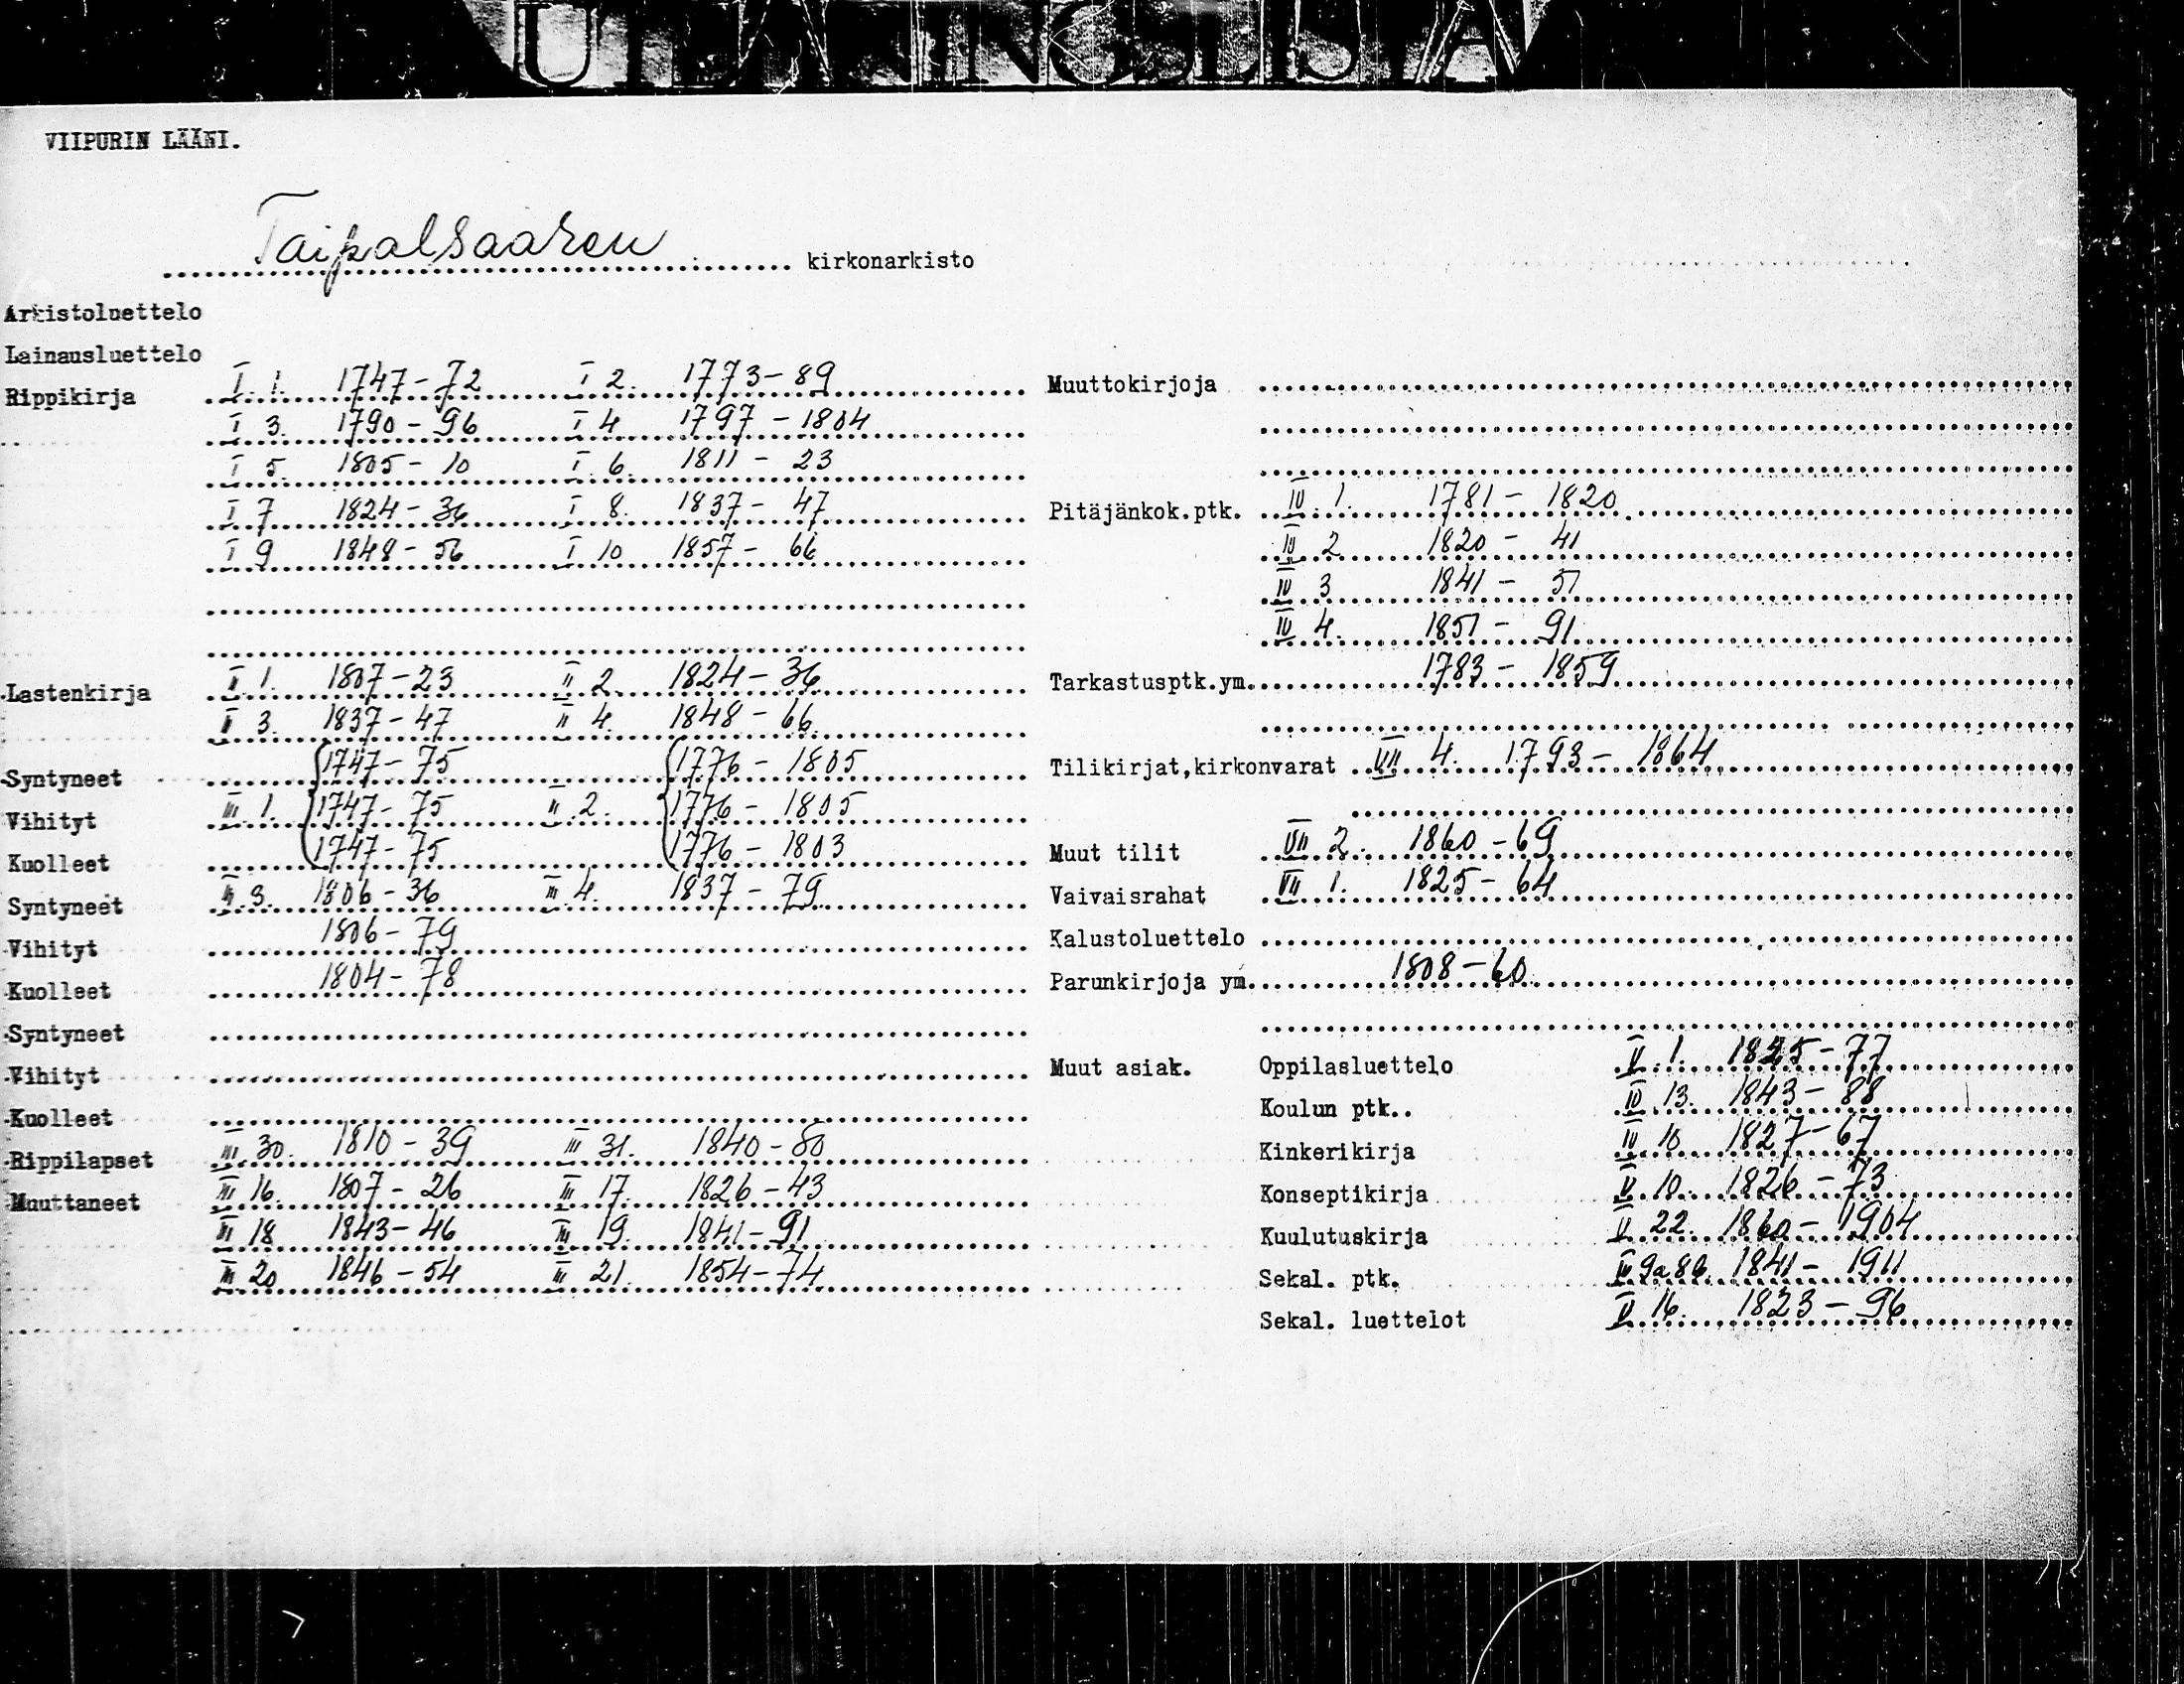 UTLÅNINGSLISTA
VIIPURIN LÄÄNI.
Taipalsaaren kirkonarkisto
Arkistoluettelo
Lainausluettelo
Rippikirja I. 1. 1747-72 I 2. 1773-89
I 3. 1790-96 I 4 1797-1804
I 5. 1805-10 I. 6. 1811-23
I 7 1824-36 I 8. 1837-47
I 9 1848-56 I 10 1857-66
Lastenkirja II. 1. 1807-23 II 2. 1824-36
II 3. 1837-47 II 4. 1848-66
Syntyneet 1747-75 1776-1805
Vihityt III. 1. 1747-75 II. 2. 1776-1805
Kuolleet 1747-75 1776-1803
Syntyneet III. 3. 1806-36 III. 4. 1837-79
Vihityt 1806-79
Kuolleet 1804-78
Syntyneet
Vihityt
Kuolleet
Rippilapset III. 30. 1810-39 III 31. 1840-80
Muuttaneet III 16. 1807-26 III 17. 1826-43
III 18 1843-46 III 19. 1841-91
III 20 1846-54 III 21. 1854-74
Muuttokirjoja
Pitäjänkok.ptk. IV. 1. 1781-1820
IV 2 1820-41
IV 3 1841-51
IV 4. 1851-91
Tarkastusptk.ym. 1783-1859
Tilikirjat,kirkonvarat VII 4. 1793-1864
Muut tilit VII 2. 1860-69
Vaivaisrahat VII 1. 1825-64
Kalustoluettelo
Parunkirjoja ym. 1808-60
Muut asiak. Oppilasluettelo V. 1. 77
Koulun ptk.. IV 13. 1843-88
Kinkerikirja IV 10 1827-67
Konseptikirja V. 10. 1826-73
Kuulutuskirja V 22. 1860-1904
Sekal. ptk. 1841-1911
Sekal. luettelot V 16. 1823-96